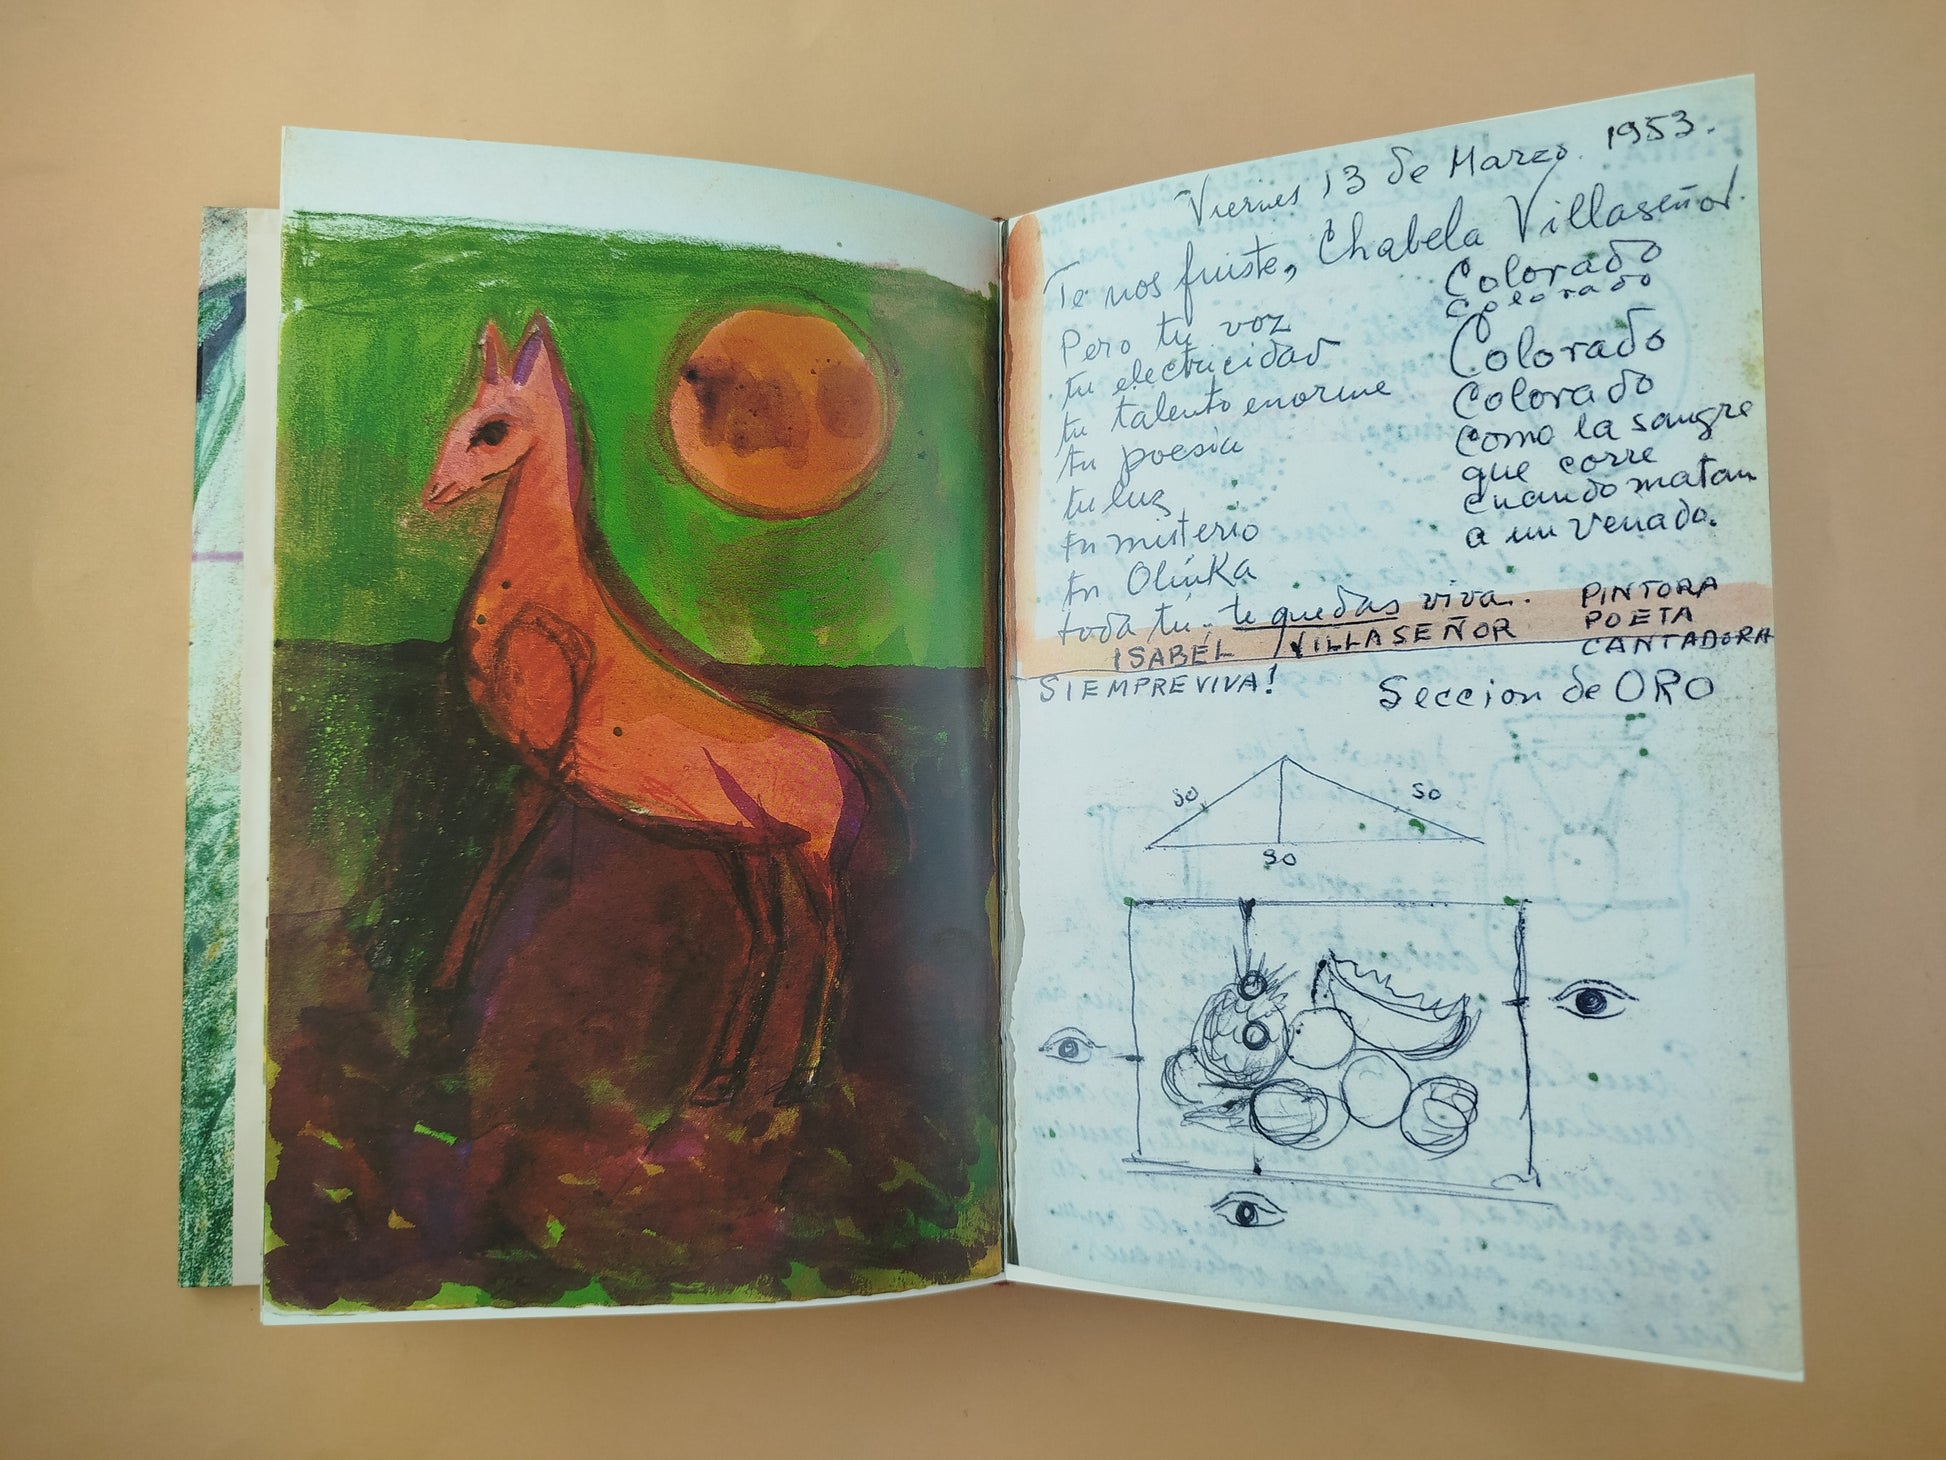 Viernes 13 de Marzo. 1953.
Te nos fuiste, Chabela Villaseñor.
Pero tu voz
tu electricidad
tu talento enorme
tu poesia
tu luz
tu misterio
tu Olinka
toda tú - te quedas viva.
Colorado
Colorado
Colorado
Colorado
como la sangre
que corre
cuando matan
a un venado.
ISABEL VILLASEÑOR
PINTORA
POETA
CANTADORA
SIEMPREVIVA!
Seccion de ORO
so
so
so